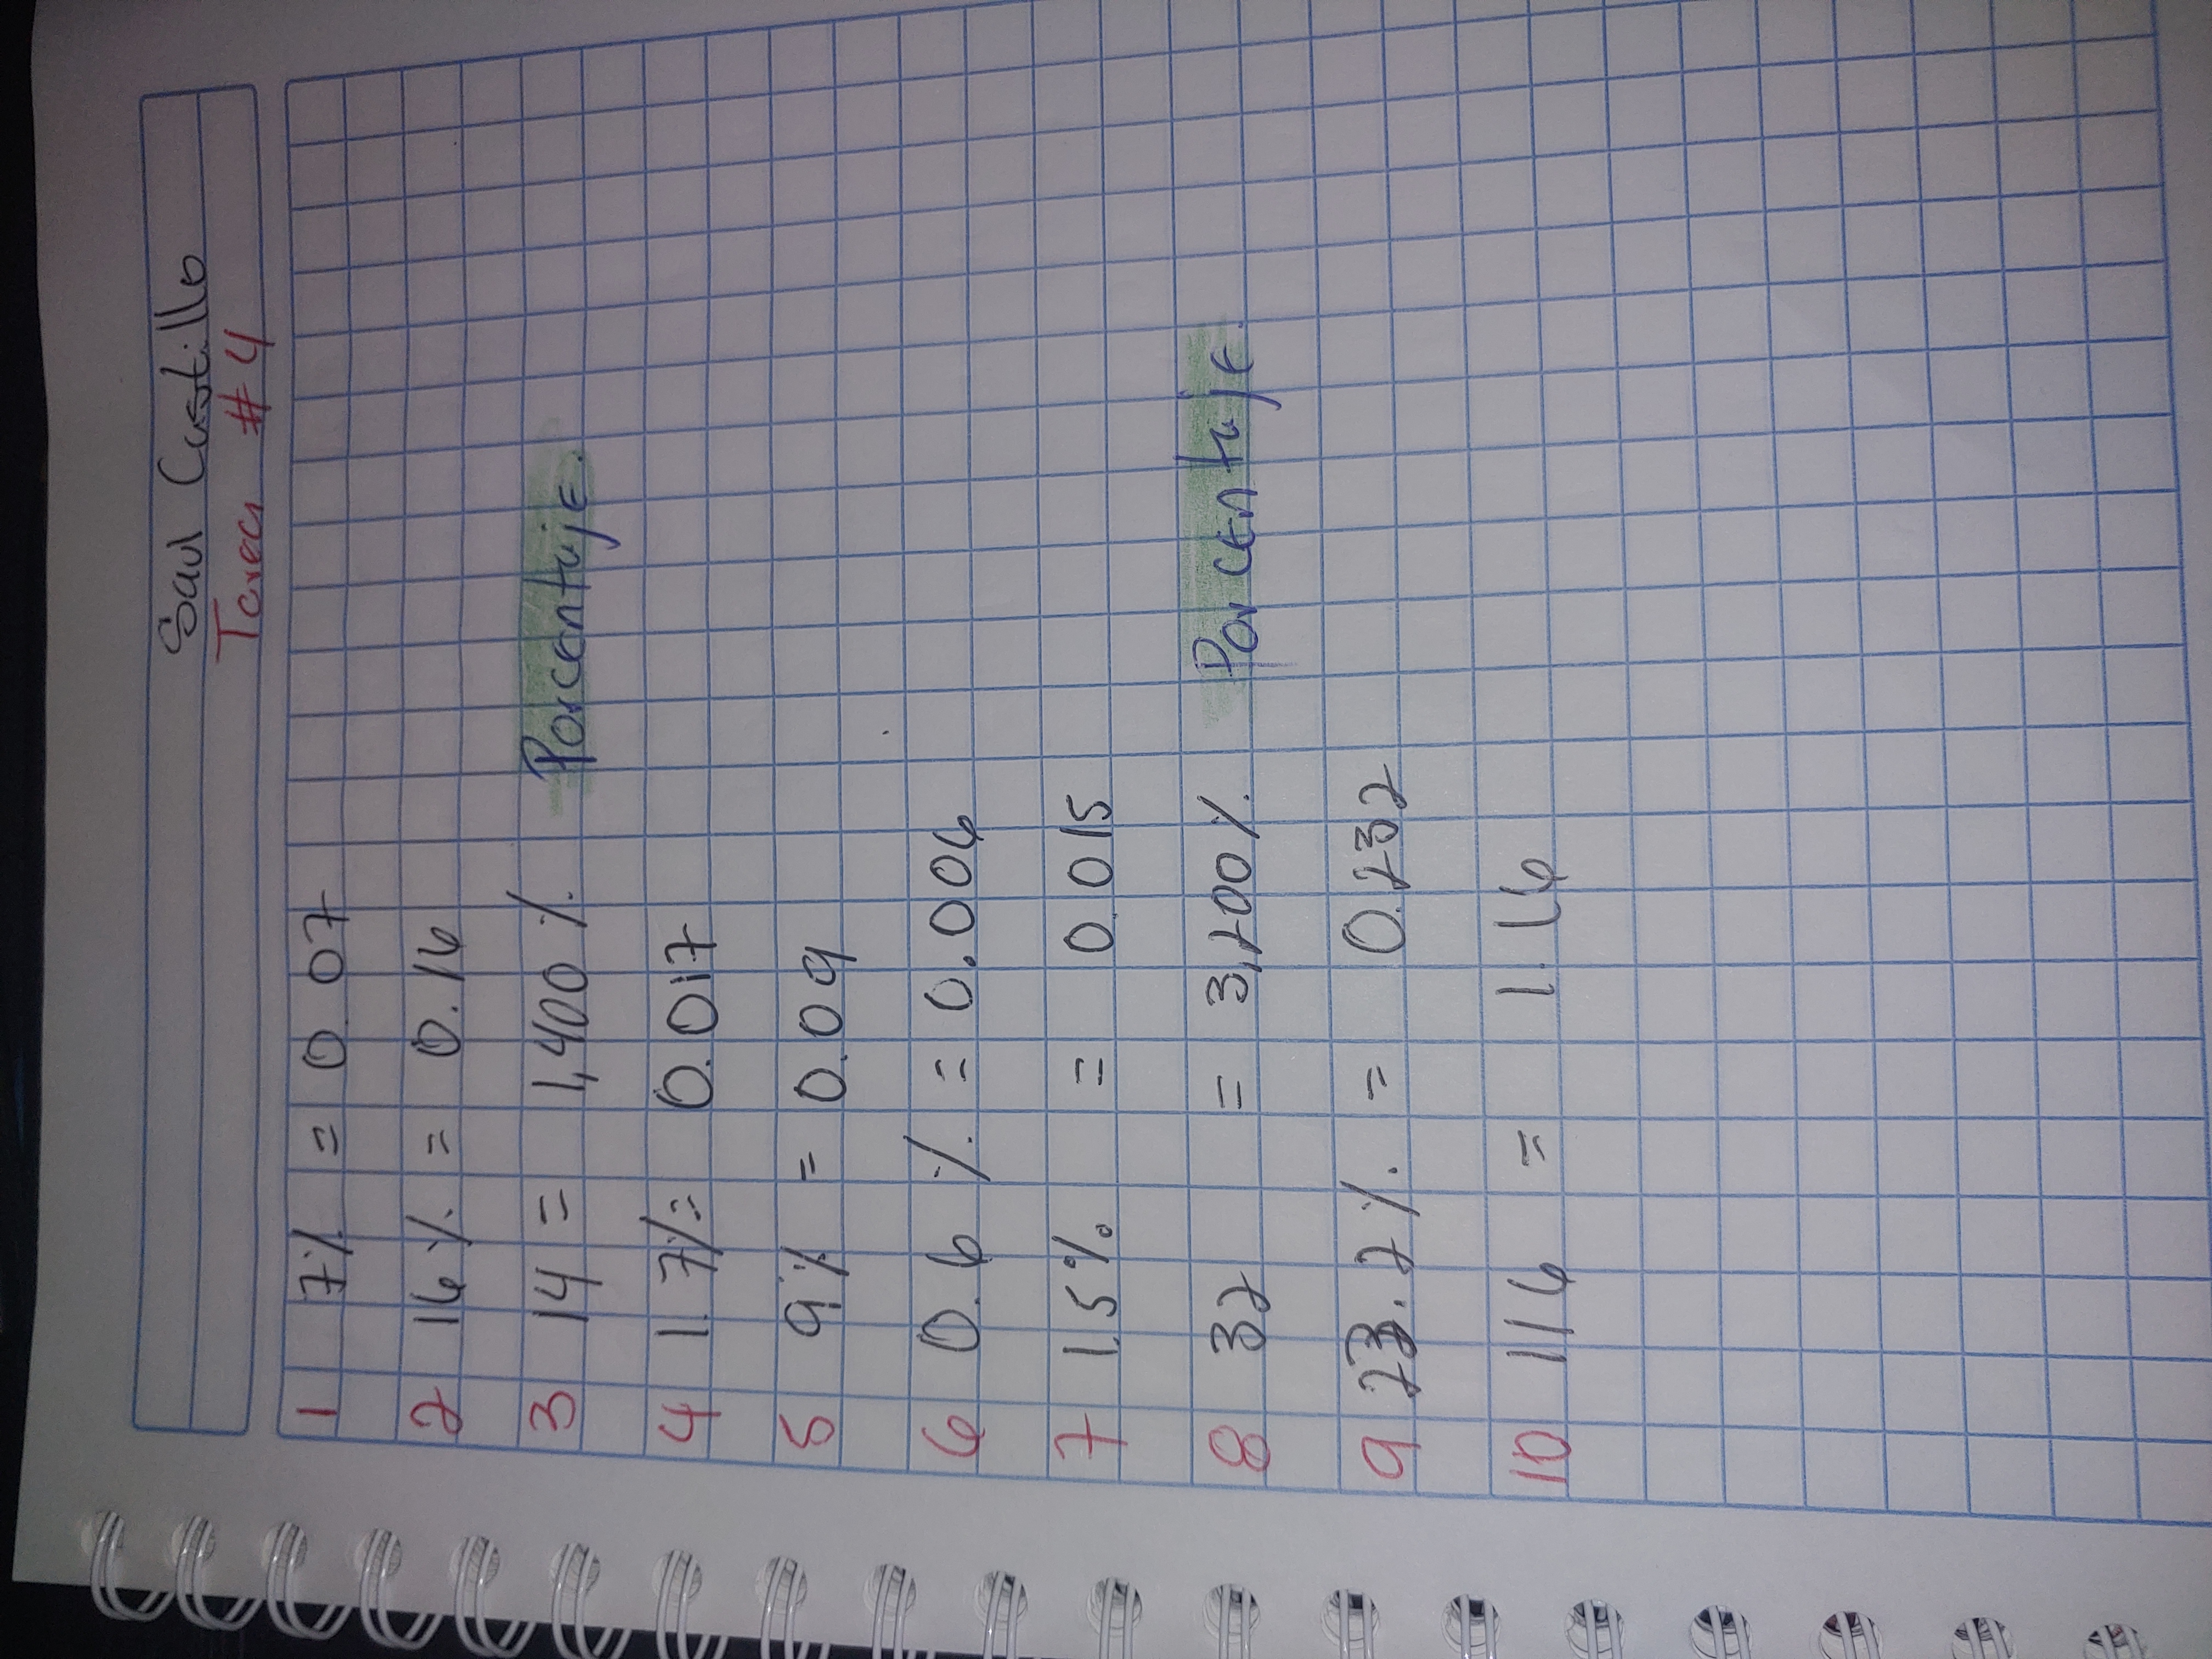 Saul Castillo
Tarea #4
1 7% = 0.07
2 16% = 0.16
3 14 = 1,400% Porcentaje.
4 1.7% = 0.017
5 9% = 0.09
6 0.6% = 0.006
7 1.5% = 0.015
8 32 = 3,200% Porcentaje.
9 23.2% = 0.232
10 116 = 1.16